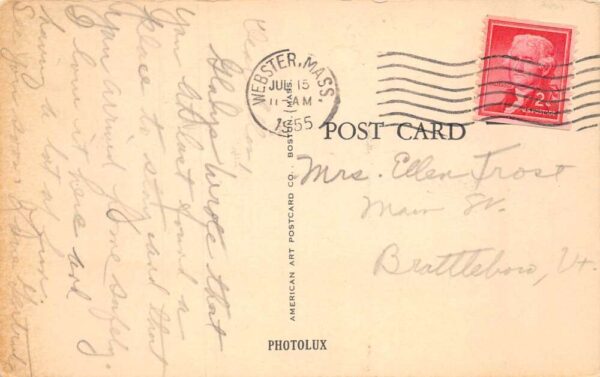 Dear Ellen,
Gladys wrote that
you at last found a
place to stay and that
you arrived home safely.
I love it here and
have a lot of fun.
WEBSTER, MASS.
JUL 15
11 AM
1955
2¢
POST CARD
Mrs. Ellen Frost
Main St.
Brattleboro, Vt.
AMERICAN ART POSTCARD CO., BOSTON, MASS.
PHOTOLUX